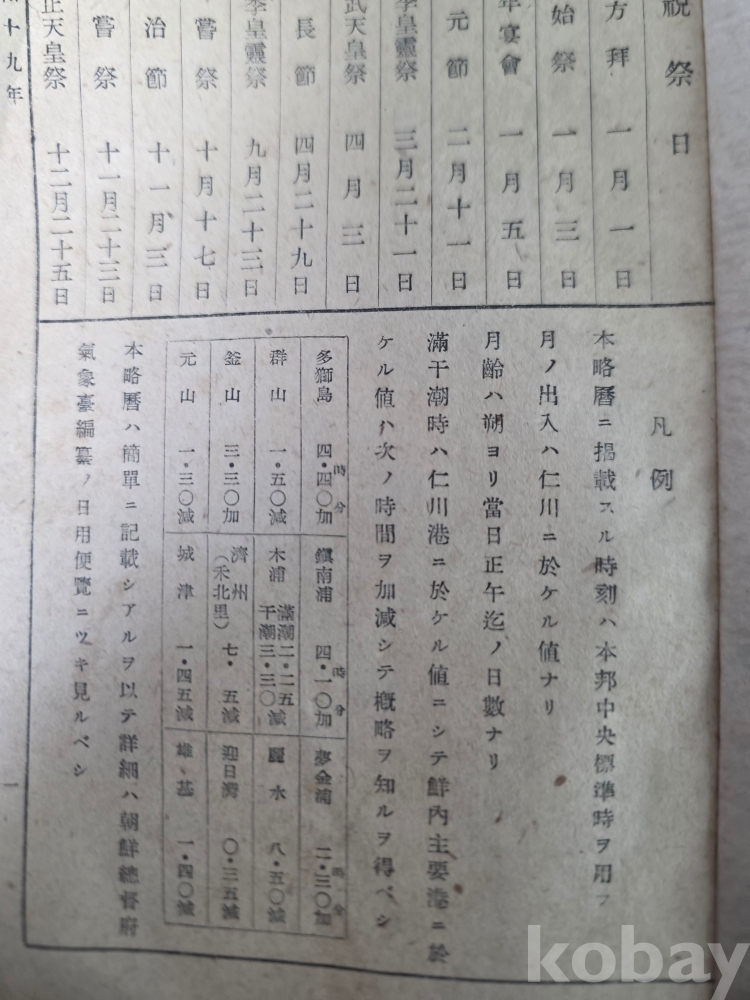 祝祭日
方拜 一月一日
始祭 一月三日
年宴會 一月五日
元節 二月十一日
季皇靈祭 三月二十一日
武天皇祭 四月三日
長節 四月二十九日
季皇靈祭 九月二十三日
嘗祭 十月十七日
治節 十一月三日
嘗祭 十一月二十三日
正天皇祭 十二月二十五日
十九年
凡例
本略曆ニ揭載スル時刻ハ本邦中央標準時ヲ用フ
月ノ出入ハ仁川ニ於ケル値ナリ
月齡ハ朔ヨリ當日正午迄ノ日數ナリ
滿干潮時ハ仁川港ニ於ケル値ニシテ鮮內主要港ニ於
ケル値ハ次ノ時間ヲ加減シテ槪略ヲ知ルヲ得ベシ
多獅島 四・四〇加 時分
鎭南浦 四・一〇加 時分
夢金浦 二・三〇加 時分
群山 一・五〇減
木浦 滿潮二・二五減 干潮三・三〇減
麗水 八・五〇減
釜山 三・三〇加
濟州(禾北里) 七・五減
迎日灣 〇・三五減
元山 一・三〇減
城津 一・四五減
雄基 一・四〇減
本略曆ハ簡單ニ記載シアルヲ以テ詳細ハ朝鮮總督府
氣象臺編纂ノ日用便覽ニツキ見ルベシ
一
kobay